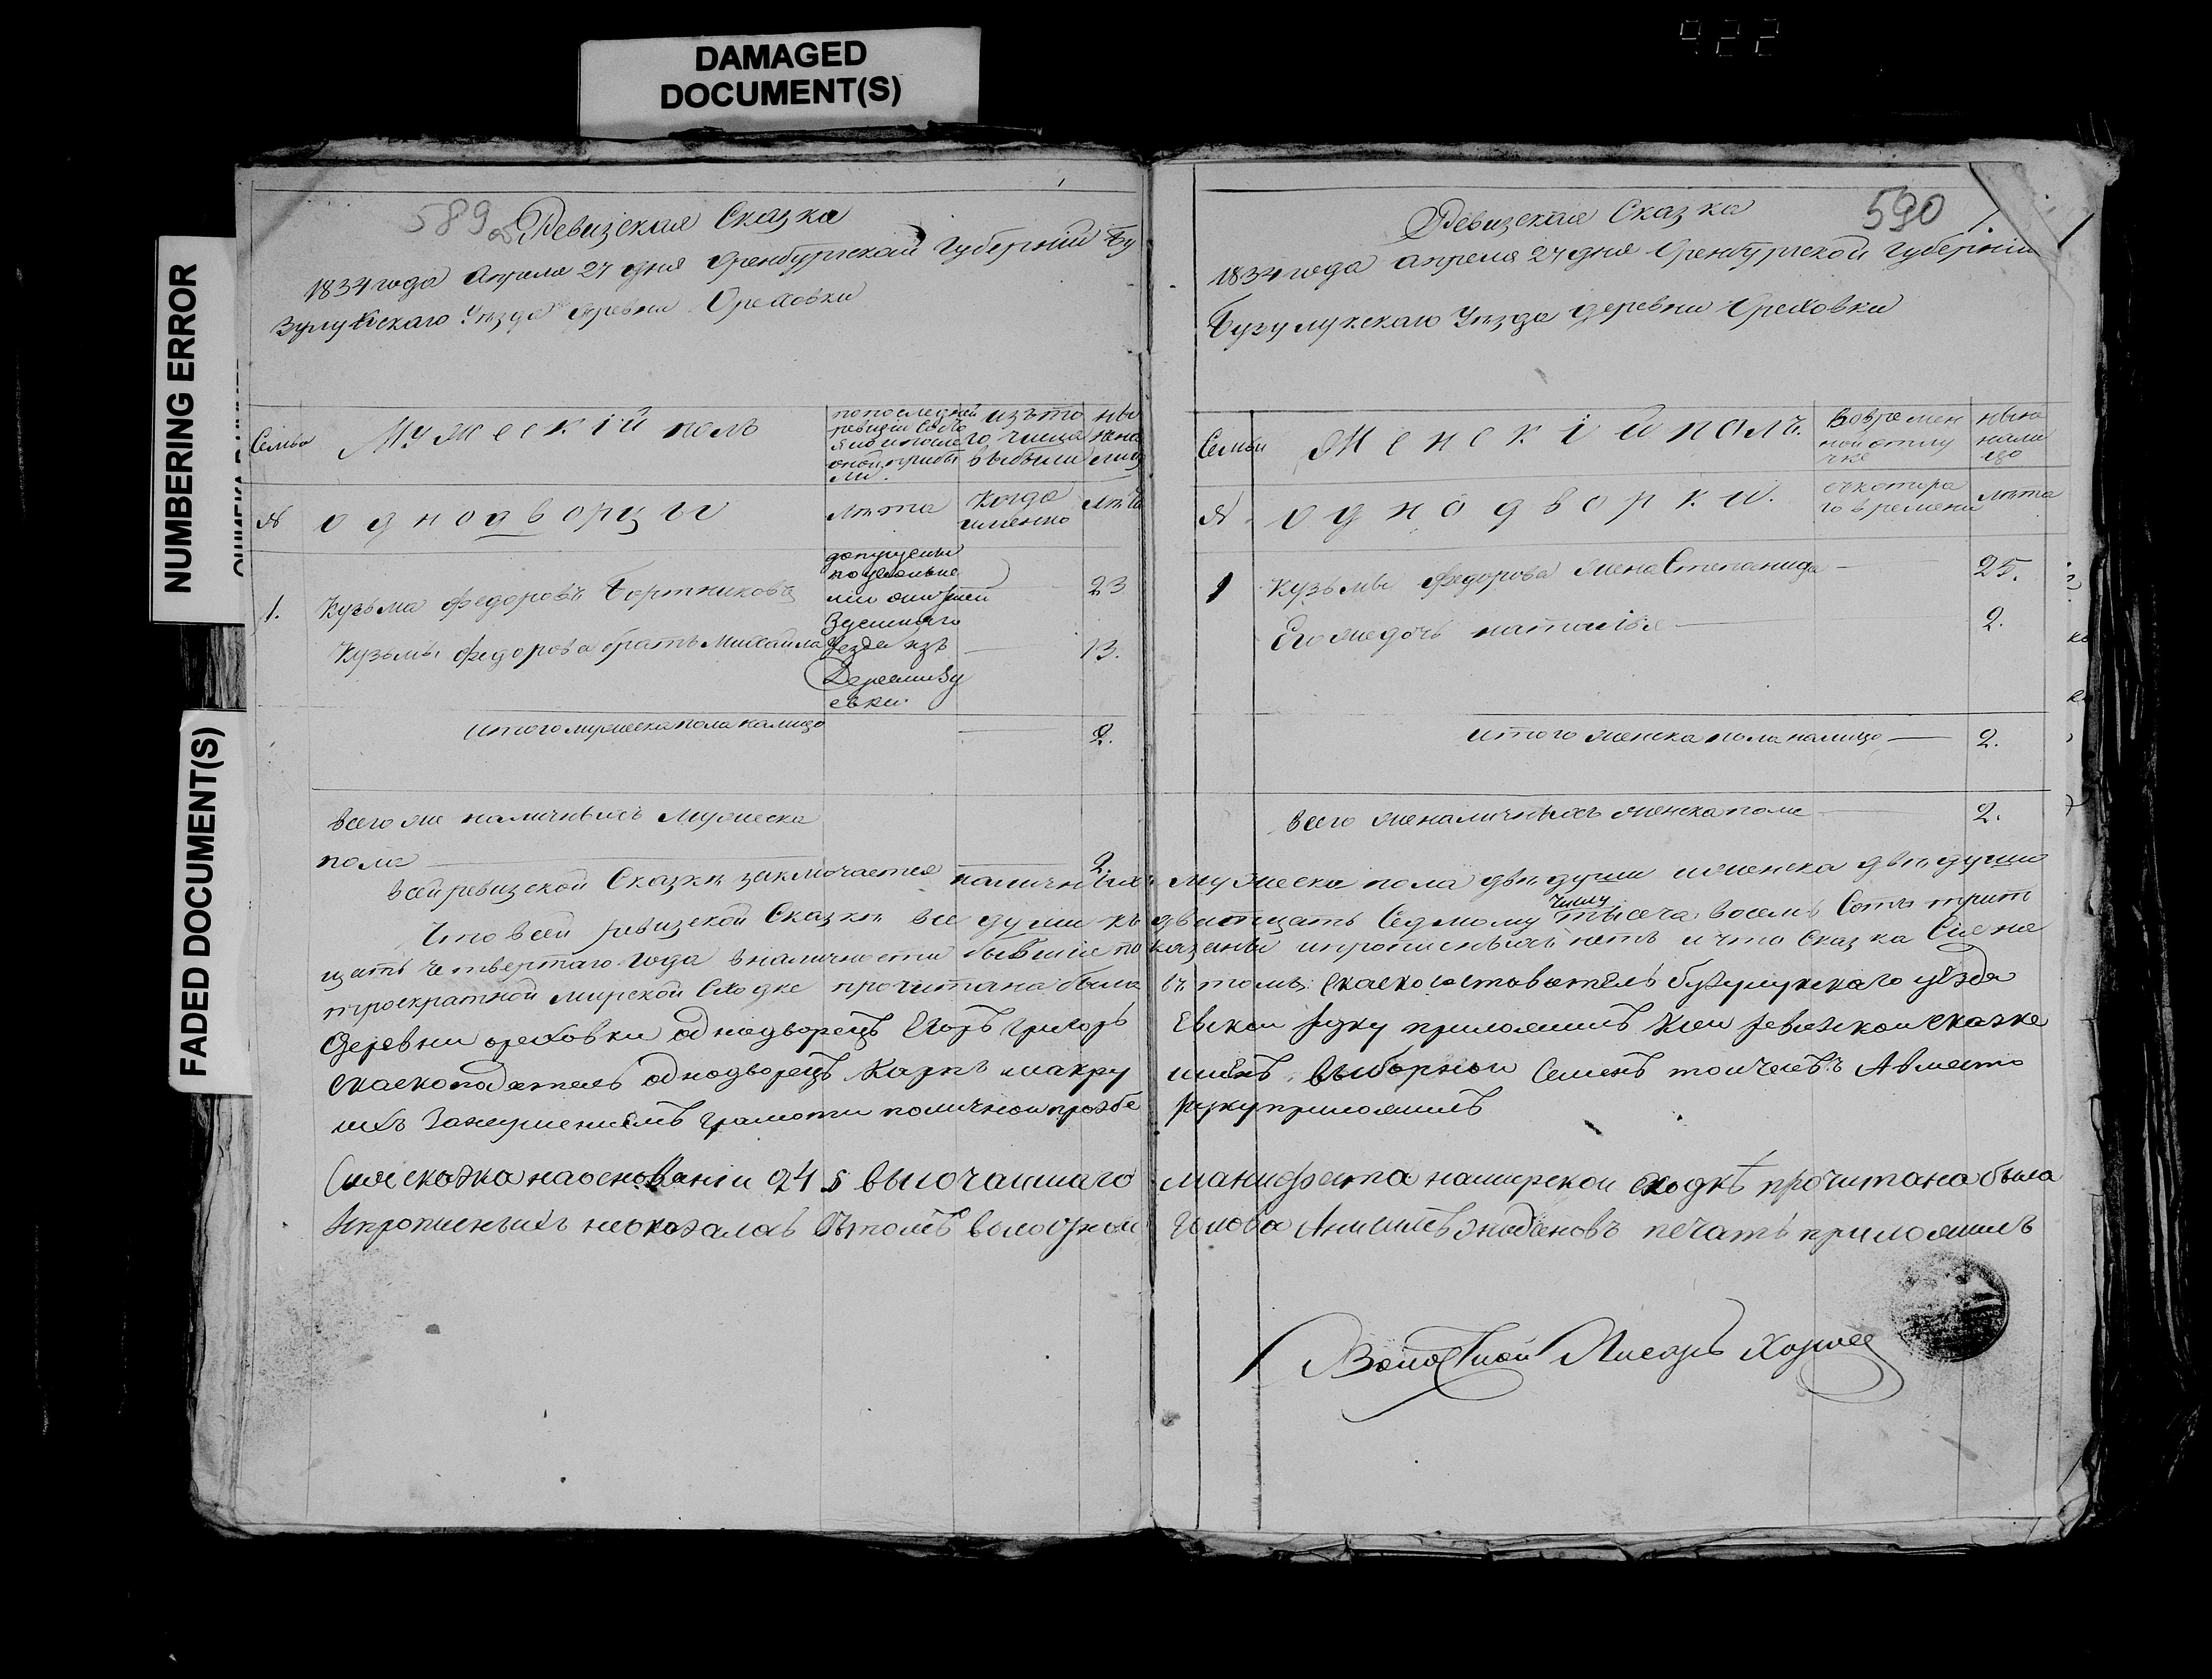 DAMAGED
DOCUMENT(S)
922
NUMBERING ERROR
FADED DOCUMENT(S)
589
Ревизская Сказка
1834 года Апреля 27 дня Оренбургской Губернии Бу
зулукскаго Уезда деревни Ореховки
Семьи
Мужескій полъ
по последней
ревизіи
изъ то
го числа
выбыли
ны
не на
лиц
№
однодворцы
лета
когда
именно
лета
1.
Кузьма Федоровъ Бортниковъ
23
Кузьмы Федорова братъ Михайла
13.
здешняго
уезда изъ
Деревни
Итого мужеска пола налицо
2.
всего же наличныхъ мужеска
пола
2
590
Ревизская Сказка
1834 года апреля 27 дня Оренбургской Губерніи
Бузулукскаго Уезда деревни Ореховки
Семьи
Женскій полъ.
Во времен
ной отлу
чке
ныне
нали
цо
№
однодворки.
съ котора
го времени
лета
1
Кузьмы Федорова жена Степанида
25.
Его же дочь Наталья
2.
итого женска пола налицо
2.
всего же наличныхъ женска пола
2.
всей ревизской Сказки заключается наличныхъ мужеска пола две души и женска две души
Что в сей ревизской Сказки все души къ дватцать Седмому числу тысеча восемь Сотъ трит
цать четвертаго года в наличности бывшие показаны и прописныхъ нетъ и что сказка Сие на
троекратной мирской Сходке прочитана была въ томъ скаскосоставатель бузулукскаго уезда
Деревни ореховки однодворецъ Егоръ Григорь евъ руку приложилъ к сей ревизской сказке
скаскоподатель однодворецъ Карпъ выборной Семенъ А вместо
ихъ за неумениемъ грамоти по личной прозбе руку приложилъ
Сия сказка на основании 24 § высочайшаго манифеста на мирской сходкѣ прочитана была
и прописныхъ не оказалась въ томъ волосной Голова печать приложилъ
Волостной Писарь